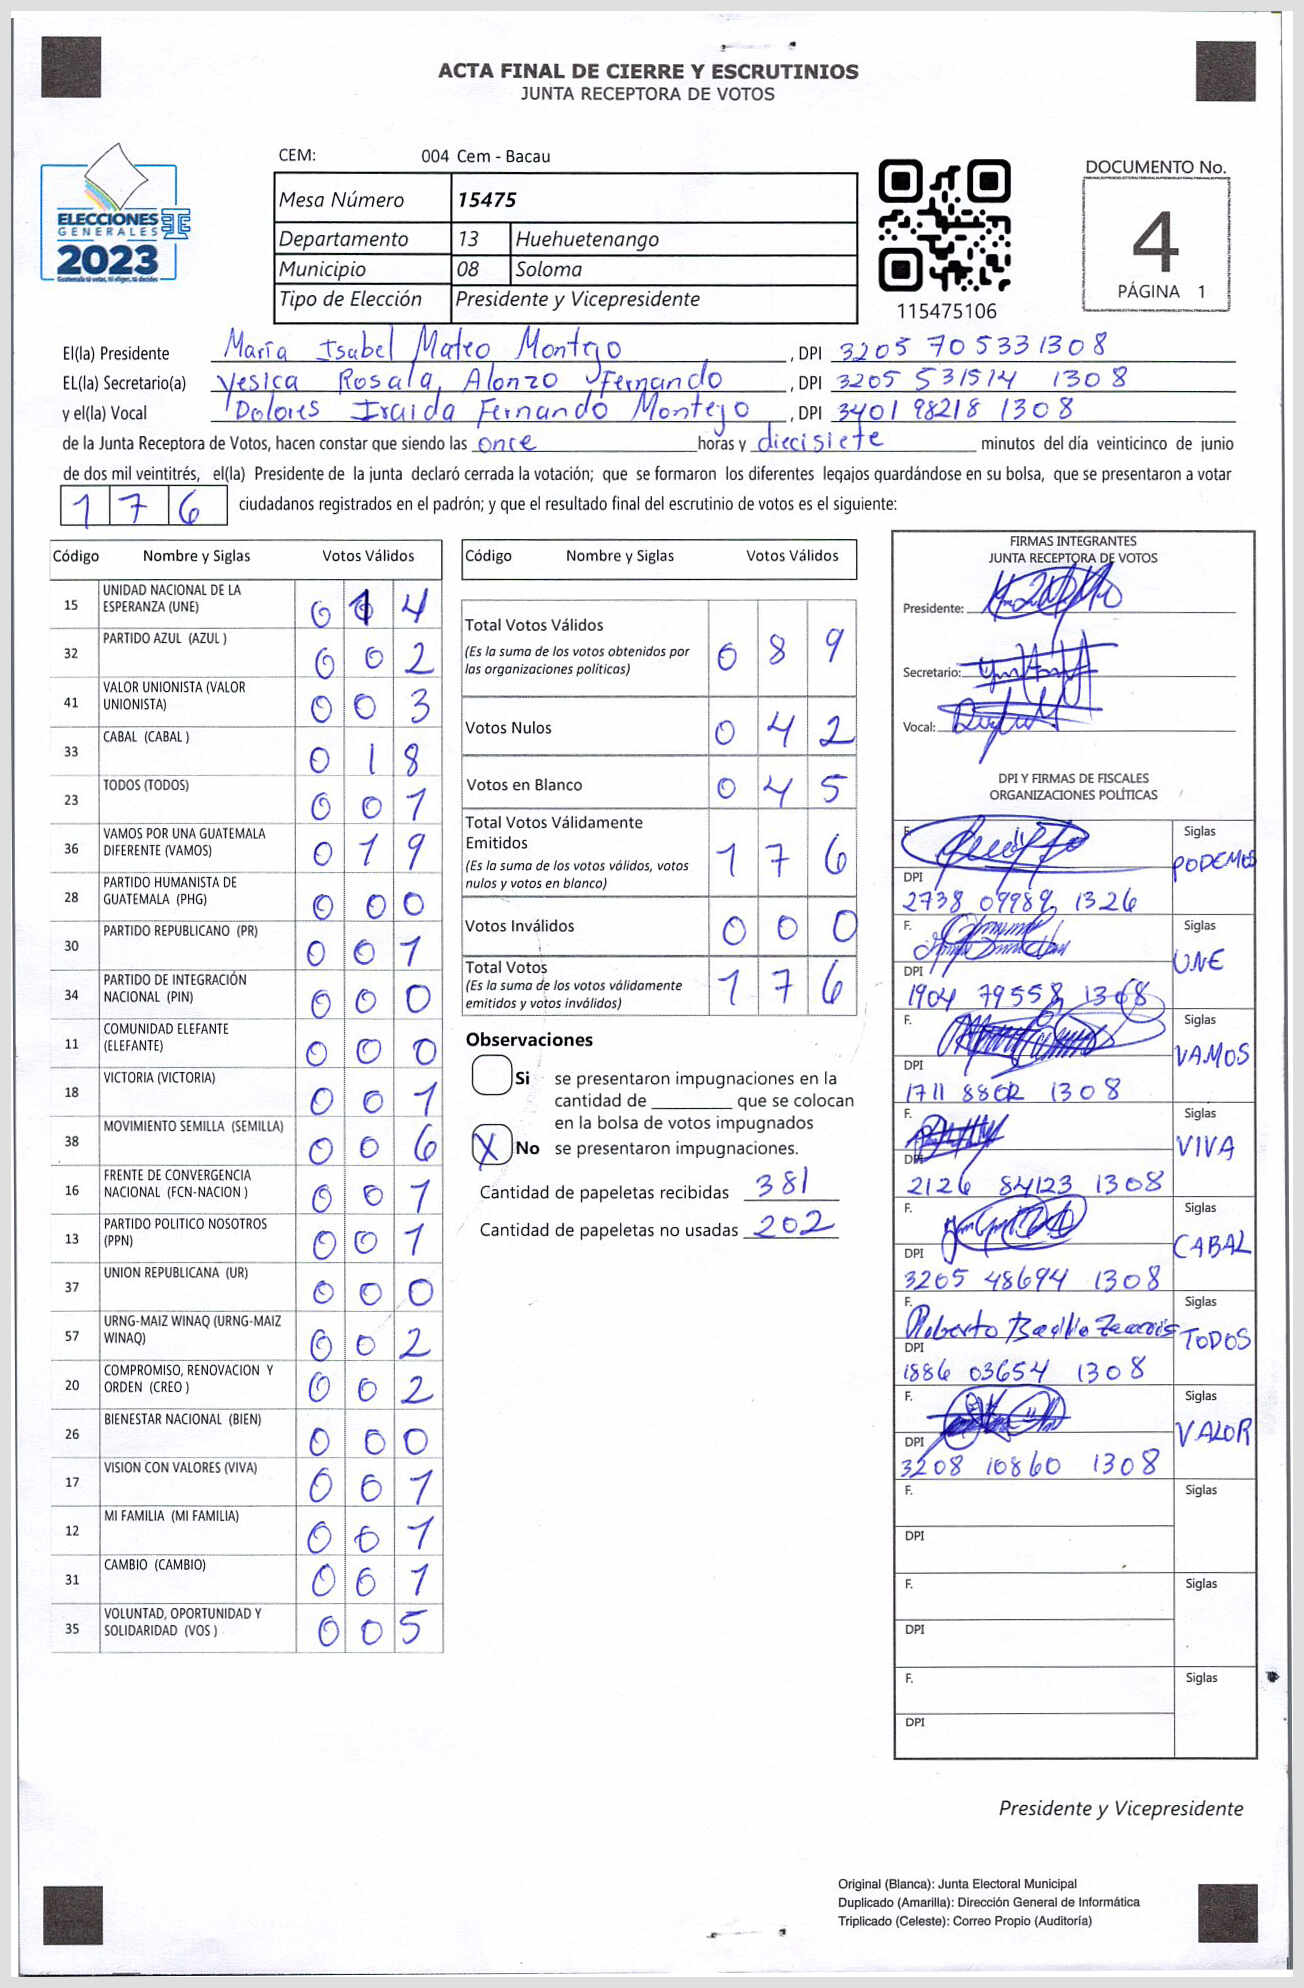 ACTA FINAL DE CIERRE Y ESCRUTINIOS
JUNTA RECEPTORA DE VOTOS
ELECCIONES
GENERALES
2023
CEM: 004 Cem - Bacau
Mesa Número 15475
Departamento 13 Huehuetenango
Municipio 08 Soloma
Tipo de Elección Presidente y Vicepresidente
115475106
DOCUMENTO No.
4
PÁGINA 1
El(la) Presidente María Isabel Mateo Montejo, DPI 3205 70533 1308
EL(la) Secretario(a) Yesica Rosala Alonzo Fernando, DPI 3205 531514 1308
y el(la) Vocal Dolores Iraida Fernando Montejo, DPI 3401 98218 1308
de la Junta Receptora de Votos, hacen constar que siendo las once horas y diecisiete minutos del día veinticinco de junio
de dos mil veintitrés, el(la) Presidente de la junta declaró cerrada la votación; que se formaron los diferentes legajos guardándose en su bolsa, que se presentaron a votar
176 ciudadanos registrados en el padrón; y que el resultado final del escrutinio de votos es el siguiente:
Código Nombre y Siglas Votos Válidos
15 UNIDAD NACIONAL DE LA
ESPERANZA (UNE) 0 1 4
32 PARTIDO AZUL (AZUL ) 0 0 2
41 VALOR UNIONISTA (VALOR
UNIONISTA) 0 0 3
33 CABAL (CABAL ) 0 1 8
23 TODOS (TODOS) 0 0 1
36 VAMOS POR UNA GUATEMALA
DIFERENTE (VAMOS) 0 1 9
28 PARTIDO HUMANISTA DE
GUATEMALA (PHG) 0 0 0
30 PARTIDO REPUBLICANO (PR) 0 0 1
34 PARTIDO DE INTEGRACIÓN
NACIONAL (PIN) 0 0 0
11 COMUNIDAD ELEFANTE
(ELEFANTE) 0 0 0
18 VICTORIA (VICTORIA) 0 0 1
38 MOVIMIENTO SEMILLA (SEMILLA) 0 0 6
16 FRENTE DE CONVERGENCIA
NACIONAL (FCN-NACION ) 0 0 1
13 PARTIDO POLITICO NOSOTROS
(PPN) 0 0 1
37 UNION REPUBLICANA (UR) 0 0 0
57 URNG-MAIZ WINAQ (URNG-MAIZ
WINAQ) 0 0 2
20 COMPROMISO, RENOVACION Y
ORDEN (CREO ) 0 0 2
26 BIENESTAR NACIONAL (BIEN) 0 0 0
17 VISION CON VALORES (VIVA) 0 0 1
12 MI FAMILIA (MI FAMILIA) 0 0 1
31 CAMBIO (CAMBIO) 0 0 1
35 VOLUNTAD, OPORTUNIDAD Y
SOLIDARIDAD (VOS ) 0 0 5
Código Nombre y Siglas Votos Válidos
Total Votos Válidos 0 8 9
(Es la suma de los votos obtenidos por
las organizaciones políticas)
Votos Nulos 0 4 2
Votos en Blanco 0 4 5
Total Votos Válidamente
Emitidos 1 7 6
(Es la suma de los votos válidos, votos
nulos y votos en blanco)
Votos Inválidos 0 0 0
Total Votos 1 7 6
(Es la suma de los votos válidamente
emitidos y votos inválidos)
Observaciones
Si se presentaron impugnaciones en la
cantidad de ________ que se colocan
en la bolsa de votos impugnados
X No se presentaron impugnaciones.
Cantidad de papeletas recibidas 381
Cantidad de papeletas no usadas 202
FIRMAS INTEGRANTES
JUNTA RECEPTORA DE VOTOS
Presidente:
Secretario:
Vocal:
DPI Y FIRMAS DE FISCALES
ORGANIZACIONES POLÍTICAS
F. Siglas
PODEMOS
DPI
2738 09989 1326
F. Siglas
UNE
DPI
1904 79558 1308
F. Siglas
VAMOS
DPI
1711 8802 1308
F. Siglas
VIVA
DPI
2126 84123 1308
F. Siglas
CABAL
DPI
3205 48694 1308
F. Siglas
Roberto TODOS
DPI
1886 03654 1308
F. Siglas
VALOR
DPI
3208 10860 1308
F. Siglas
DPI
F. Siglas
DPI
F. Siglas
DPI
Presidente y Vicepresidente
Original (Blanca): Junta Electoral Municipal
Duplicado (Amarilla): Dirección General de Informática
Triplicado (Celeste): Correo Propio (Auditoría)